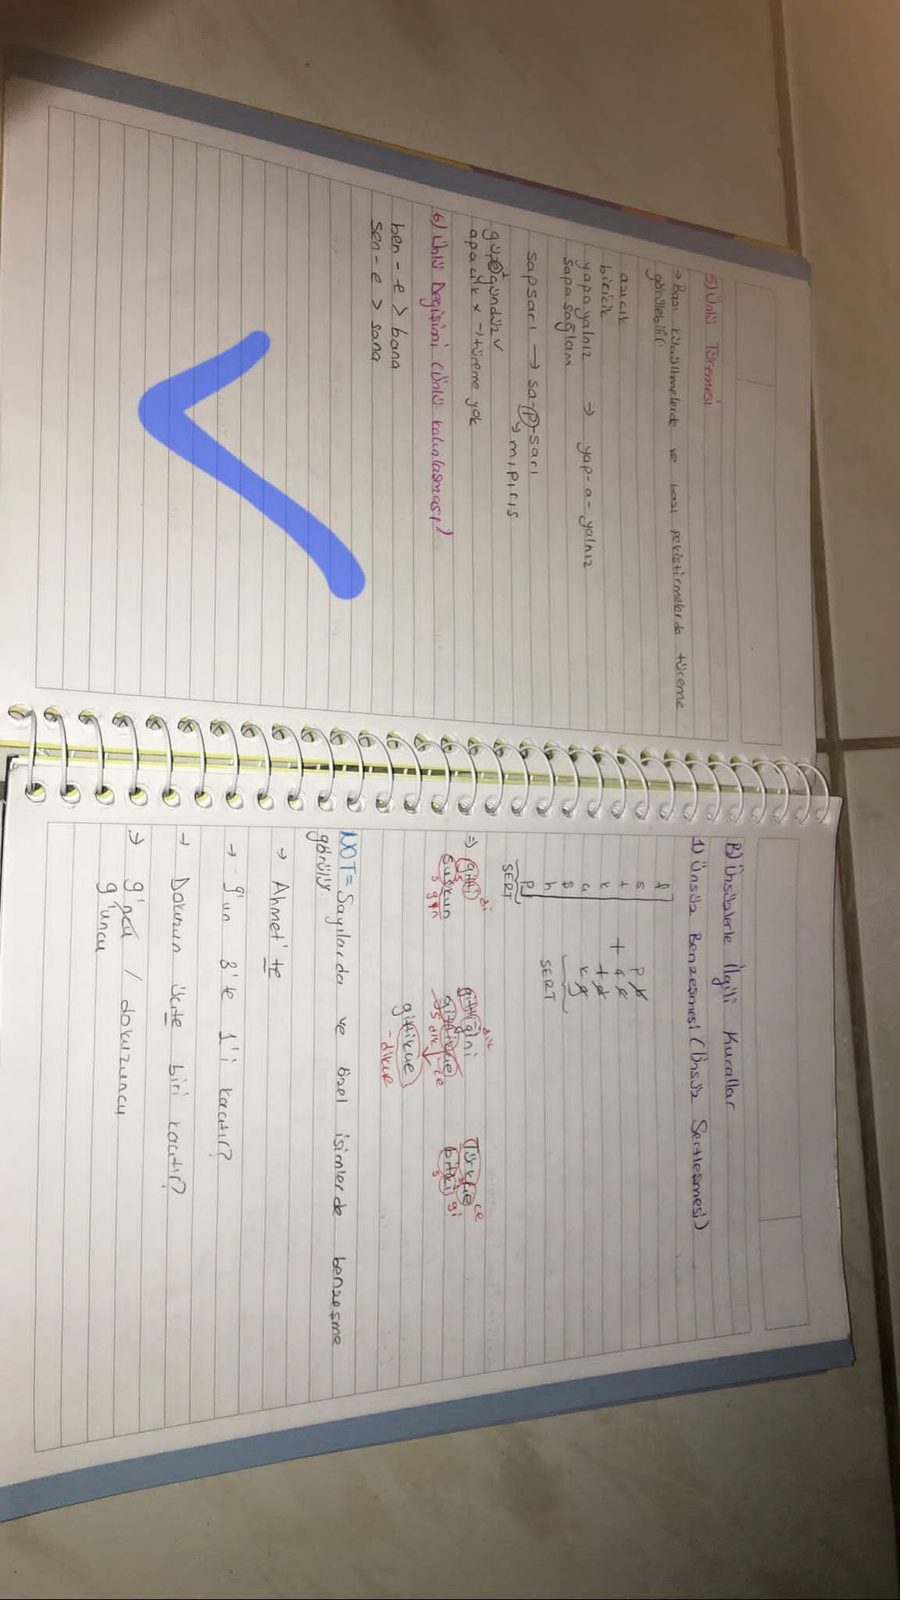 5) Ünlü Türemesi
→ Bazı küçültmelerde ve bazı pekiştirmelerde türeme
görülebilir
azıcık
biricik
yapayalnız → yap-a-yalnız
sapasağlam
sapsarı → sa-(p)-sarı
→ mıpırıs
güp e gündüz ✓
apaçık x → türeme yok
6) Ünlü Değişimi (Ünlü kalınlaşması)
ben - e > bana
sen - e > sana
B) Ünsüzlerle İlgili Kurallar
1) Ünsüz Benzeşmesi (Ünsüz Sertleşmesi)
f
s
t
k
ç
ş
h
p
SERT
+
SERT
⇒ gitti di
suskun gun
gittiğini dik
gittikçe
gittikçe
-dikçe
Türkçe ce
bitki gi
NOT= Sayılarda ve özel isimlerde benzeşme
görülür.
→ Ahmet'te
→ 9'un 3'te 1'i kaçtır?
→ Dokuzun üçte biri kaçtır?
→ 9'ncu / dokuzuncu
9'uncu